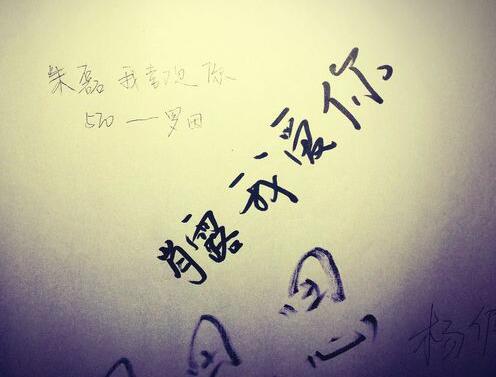 朱磊 我喜欢你
520 一罗田
肖露 我爱你
思
杨